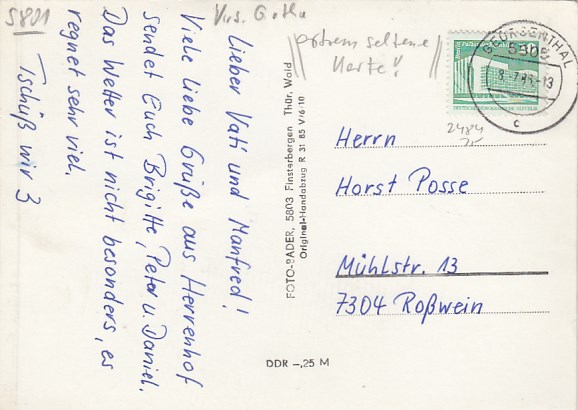 5801
Krs. Gotha
extrem seltene
Karte!
Lieber Vati und Manfred!
Viele liebe Grüße aus Herrenhof
sendet Euch Brigitte, Peter u. Daniel.
Das Wetter ist nicht besonders, es
regnet sehr viel.
Tschüß wir 3
FOTO-BADER, 5803 Finsterbergen Thür. Wald
Original-Handabzug R 31 85 V/6/10
DDR –,25 M
GEORGENTHAL
5809
c
DEUTSCHE DEMOKRATISCHE REPUBLIK
2484
Herrn
Horst Posse
Mühlstr. 13
7304 Roßwein